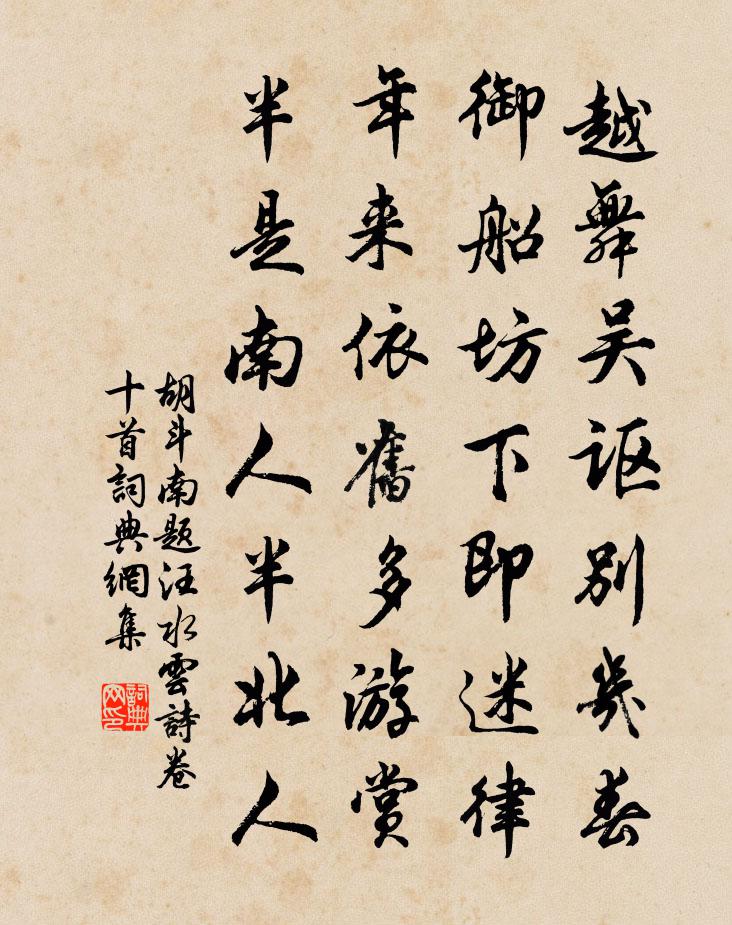 越舞吴讴别几春
御船坊下即迷律
年来依舊多游赏
半是南人半北人
胡斗南题汪水雲詩卷
十首詞典網集
詞典网印